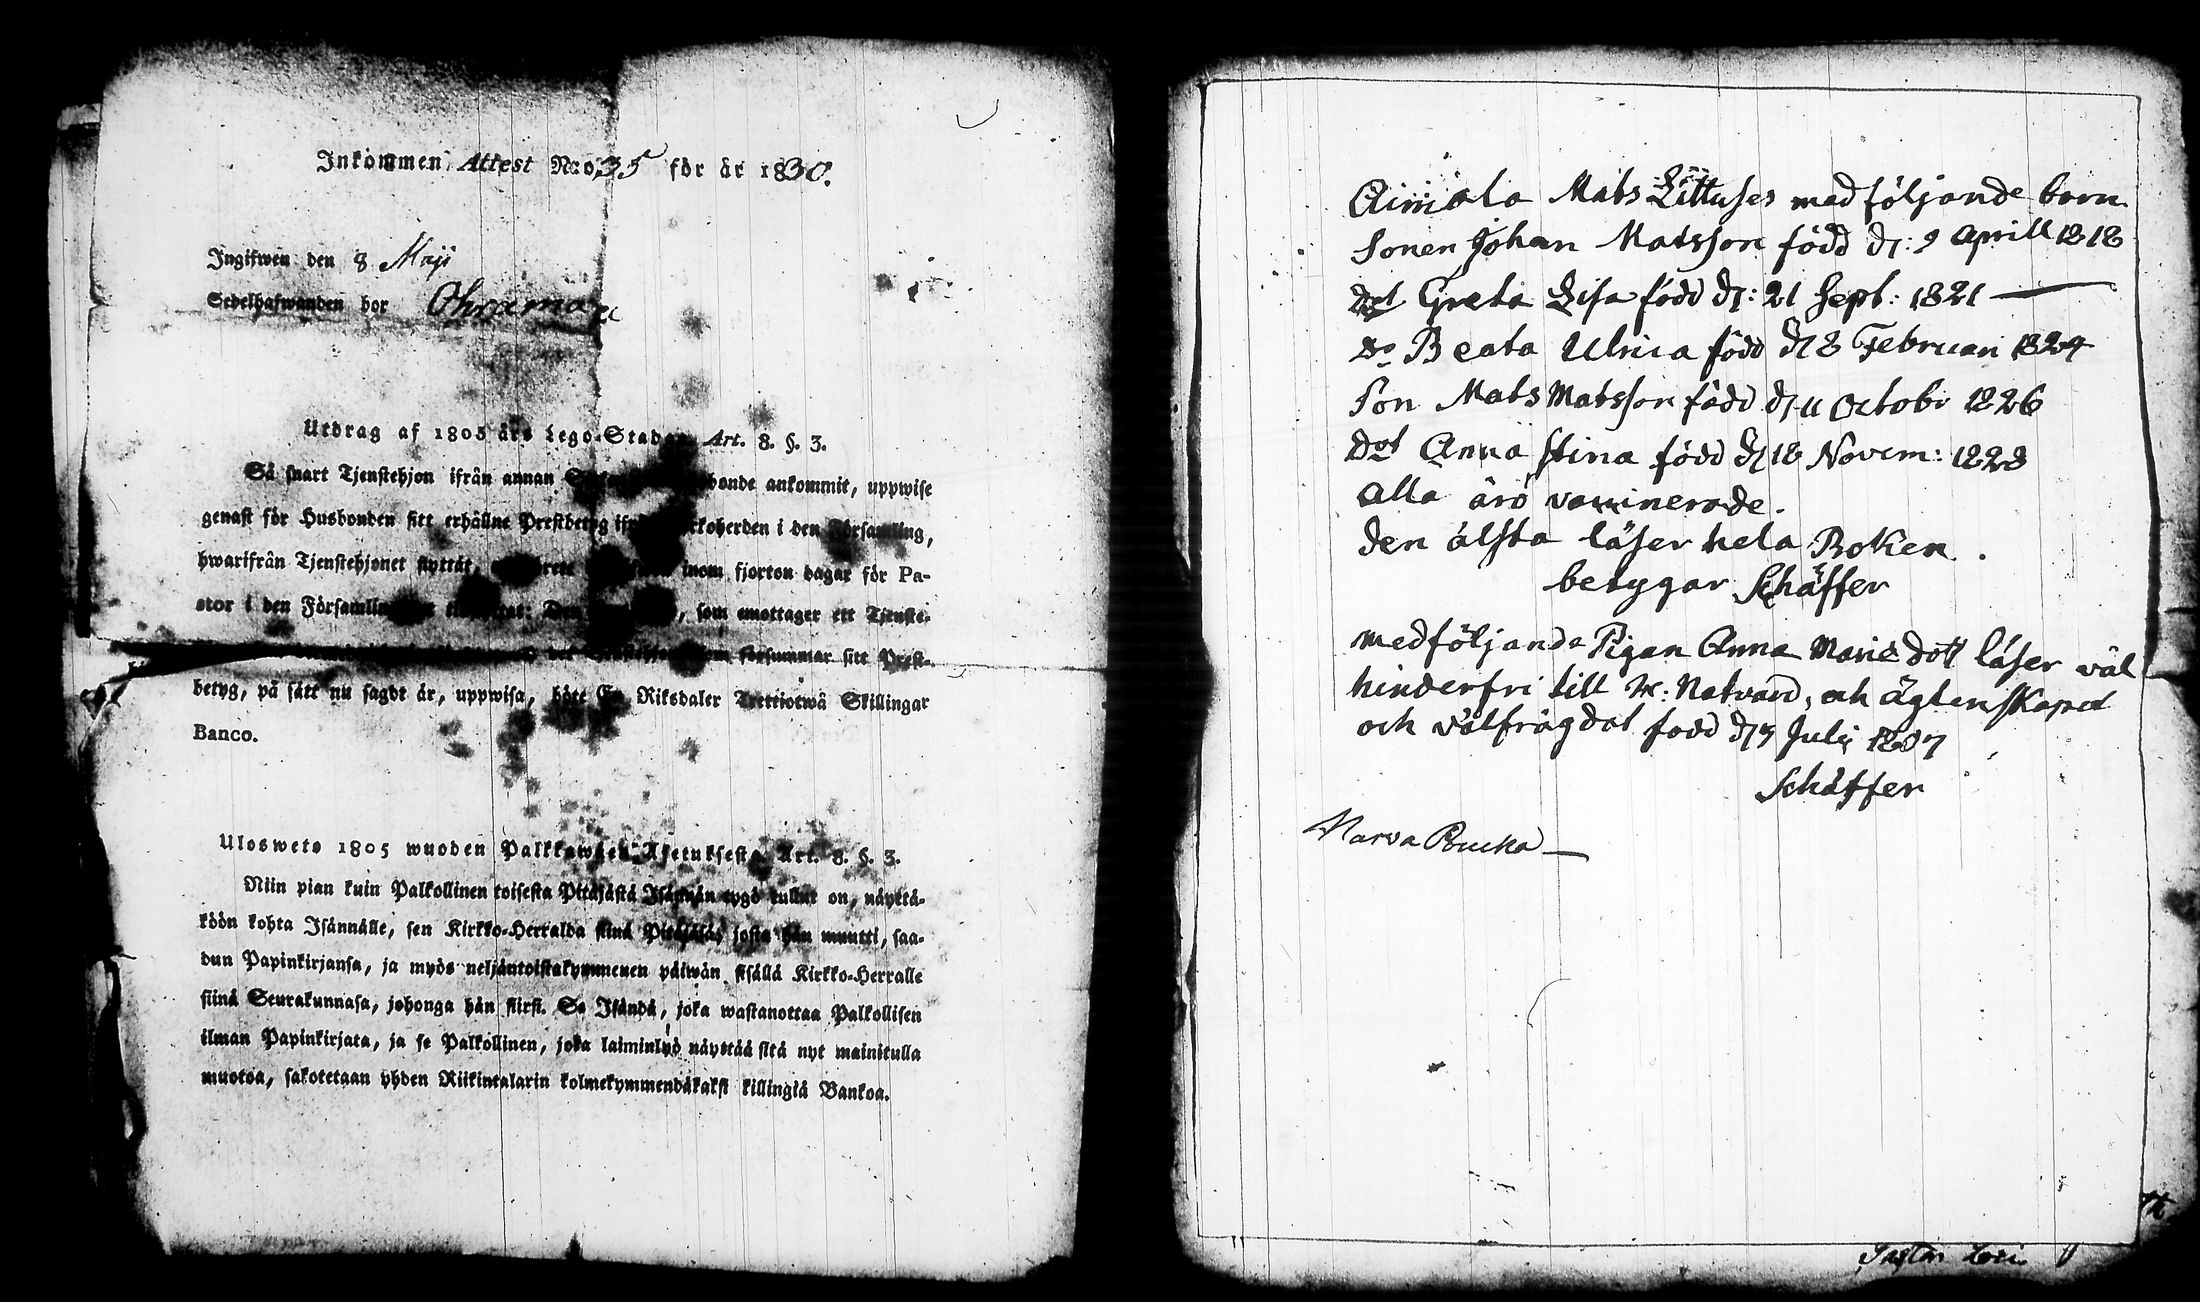 Inkommen Attest N:o 35 för år 1830.
Ingifwen den 8 Maji
Sedelhafwanden bor
Utdrag af 1805 års Lego-Stadga Art. 8. §. 3.
Så snart Tjenstehjon ifrån annan bonde ankommit, uppwise
genast för Husbonden sitt erhållne Prestbetyg ifrån Kyrkoherden i den Församling,
hwarifrån Tjenstehjonet flyttat, inom fjorton dagar för Pa-
stor i den Församling som emottager ett Tjenste-
försummar sitt Prest-
betyg, på sätt nu sagdt är, uppwisa, böte En Riksdaler Trettiotwå Skillingar
Banco.
Uloswето 1805 wuoden Palkkawäen-Asetuksesta. Art. 8. §. 3.
Niin pian kuin Palkollinen toisesta Pitäjästä Isännän tygö tullut on, näyttä-
köön kohta Isännälle, sen Kirkko-Herralda siinä Pitäjäsä, josta hän muutti, saa-
dun Papinkirjansa, ja myös neljäntoistakymmenen päiwän sisällä Kirkko-Herralle
siinä Seurakunnasa, johonga hän siirsi. Se Isändä, joka wastanottaa Palkollisen
ilman Papinkirjata, ja se Palkollinen, joka laiminlyö näyttää sitä nyt mainitulla
muotoa, sakotetaan yhden Riikintalarin kolmekymmendäkaksi killingiä Bankoa.
Mats medföljande barn
Sonen Johan Matsson född d: 9 Aprill 1818
dot Greta Lisa född d: 21 Sept: 1821
Do Beata Ulrica född d 8 Februari 1824
Son Mats Matsson född d 11 Octobr 1826
Dot Anna Stina född d 18 Novem: 1828
alla äro vaccinerade.
den älsta läser hela Boken.
betygar Schäffer
medföljande Pigan Anna Marie dott läser väl
hinderfri till H: Natvard, och ägtenskapet
och välfrägdat född d 7 Julij 1807
Schäffer